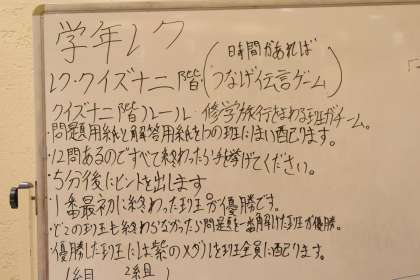 学年レク
レク・クイズ十二階・(時間があれば
つなげ伝言ゲーム)
クイズ十二階ルール・修学旅行をまわる班がチーム。
・問題用紙と解答用紙を1つの班に1まい配ります。
・12問あるのですべて終わったら手を挙げてください。
・5分後にヒントを出します
・1番最初に終わった班が優勝です。
・どこの班も終わらなかったら問題を一番解けた班が優勝。
・優勝した班には紫のメダルを班全員に配ります。
1組 2組